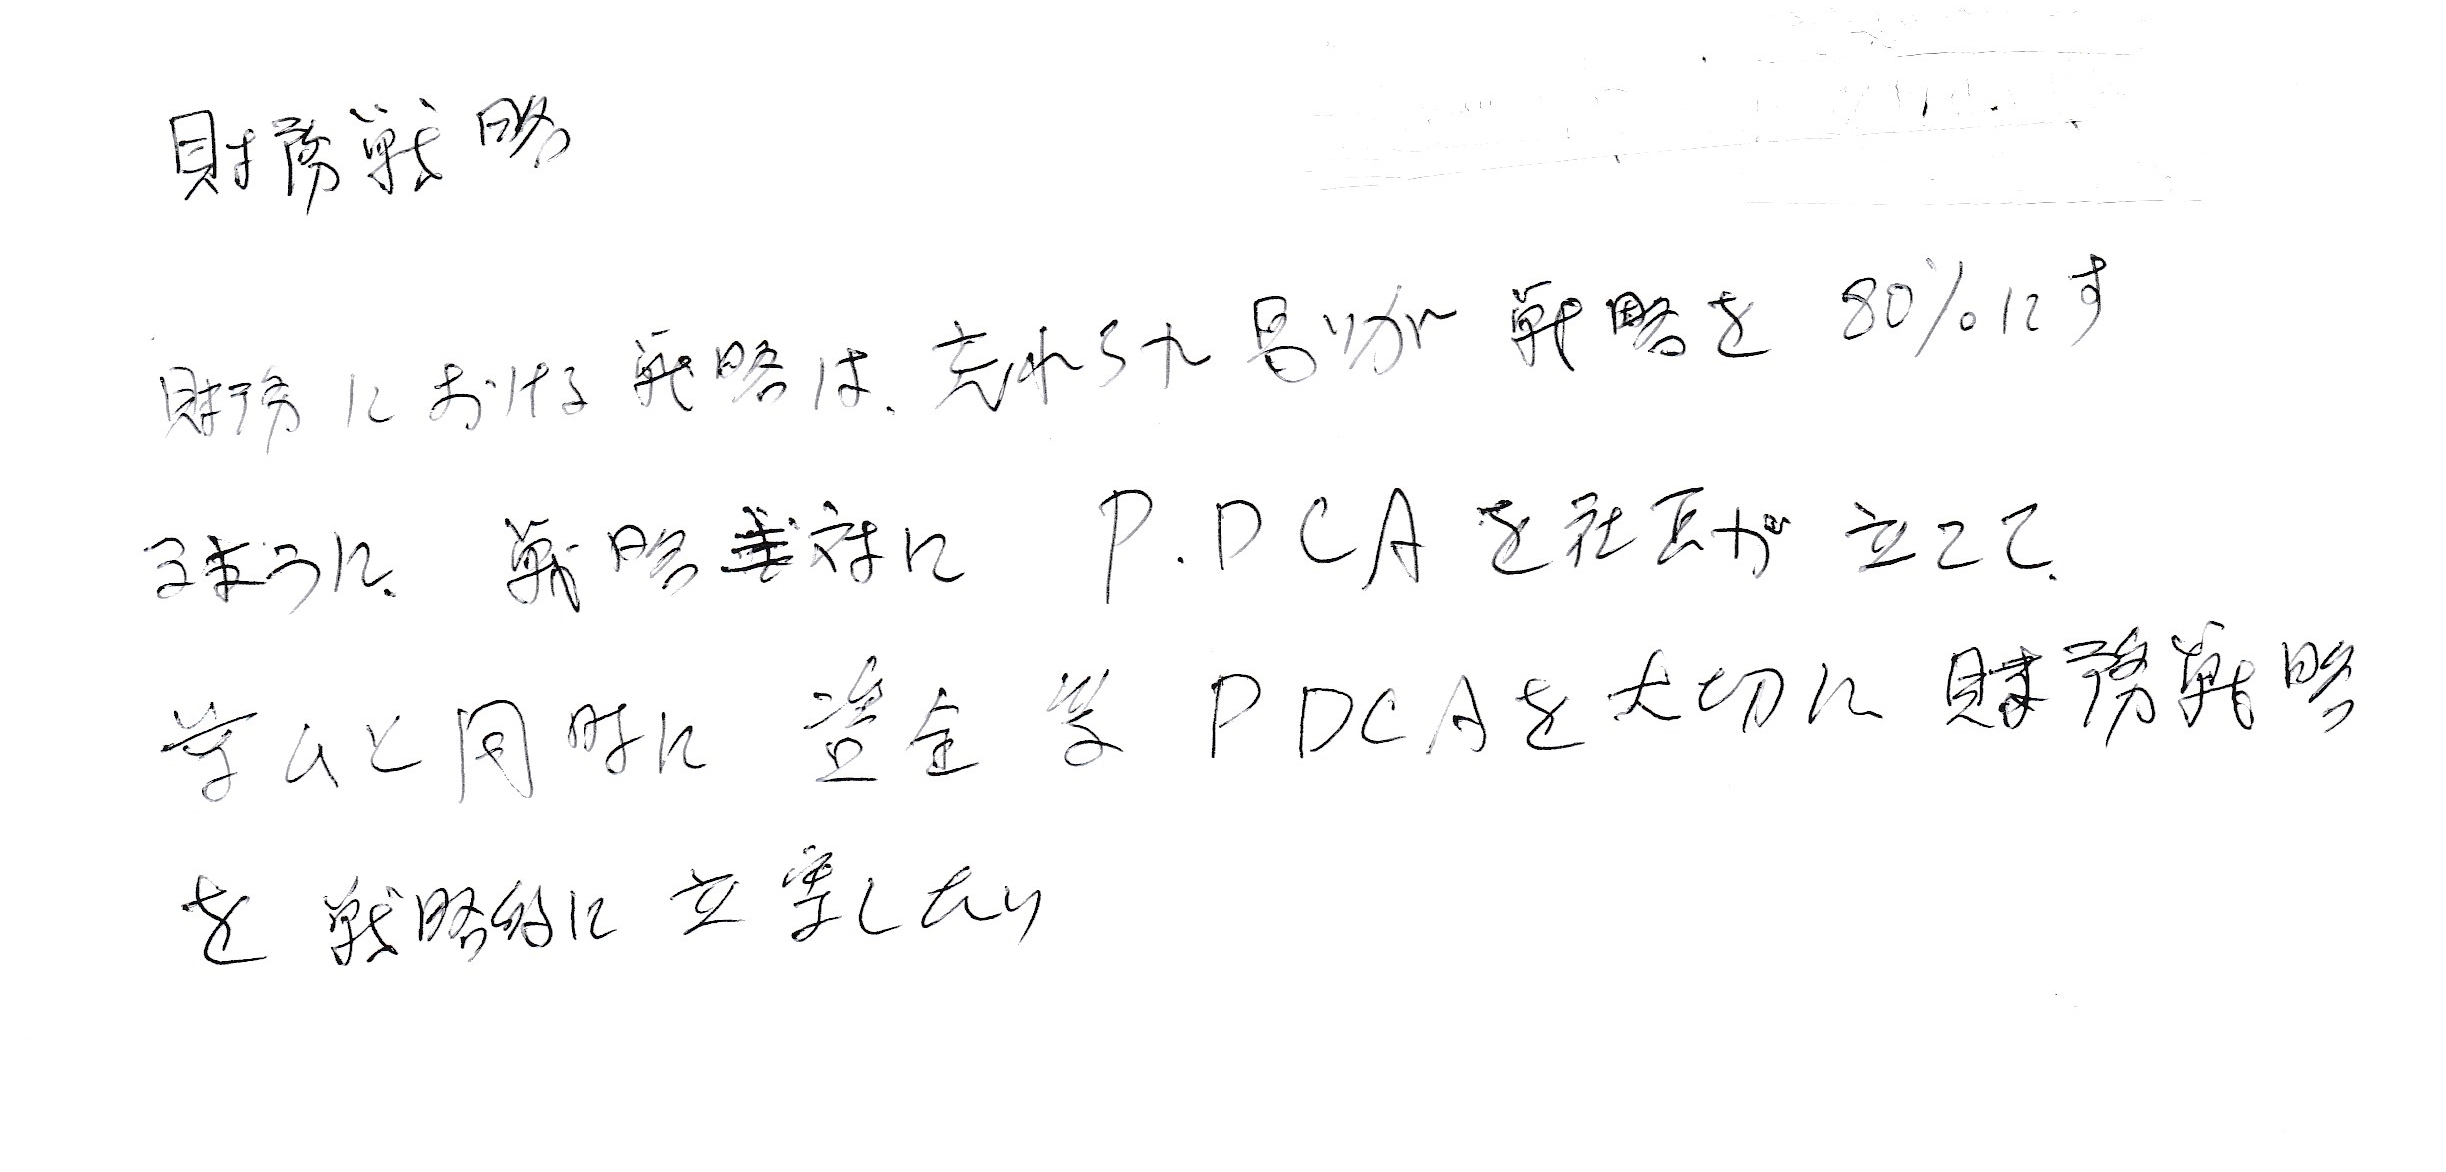 財務戦略
財務における戦略は、忘れられ易いが 戦略を 80%にす
るように、戦略 対に P.DCAを社長が 立てて、
学ぶと同時に 資金 学 PDCAを大切に 財務戦略
を 戦略的に 立案したい